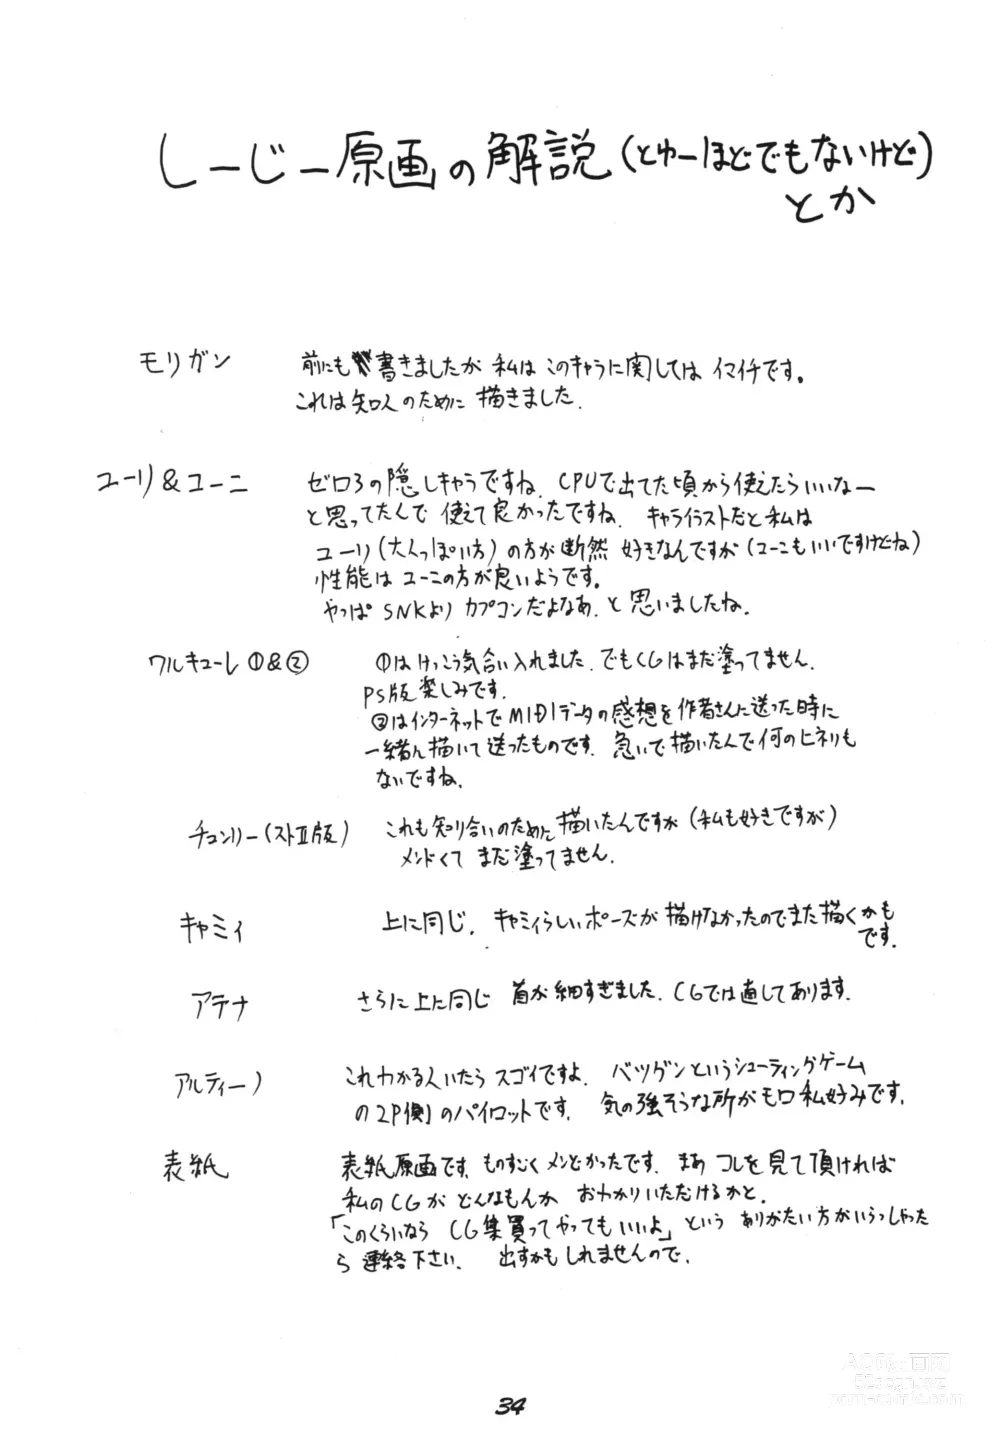 しーじー原画の解説(とゆーほどでもないけど)
とか
モリガン
前にも書きましたが 私は このキャラに関しては イマイチです。
これは知人のために 描きました.
ユーリ&ユーニ
ゼロ3の隠しキャラですね. CPUで出てた頃から使えたらいいなー
と思ってたんで 使えて良かったですね. キャライラストだと私は
ユーリ(大人っぽい方)の方が断然 好きなんですが(ユーニもいいですけどね)
性能は ユーニの方が良いようです。
やっぱ SNKより カプコンだよなあ. と 思いましたね.
ワルキューレ ①&②
①は けっこう気合い入れました. でもCGはまだ塗ってません.
PS版楽しみです.
②はインターネットでMIDIデータの感想を作者さんに送った時に
一緒に描いて送ったものです. 急いで描いたんで何のヒネリも
ないですね.
チュンリー(ストII版)
これも知り合いのために描いたんですが(私も好きですが)
メンドくて まだ塗ってません.
キャミィ
上に同じ. キャミィらしいポーズが 描けなかったのでまた描くかも
です.
アテナ
さらに上に同じ 首が細すぎました. CGでは直してあります.
アルティーノ
これわかる人いたら スゴイですよ. バツグンというシューティングゲーム
の2P側のパイロットです. 気の強そうな所がモロ私好みです.
表紙
表紙原画です. ものすごくメンどかったです. まあ コレを見て頂ければ
私のCGが どんなもんか おわかりいただけるかと.
「このくらいなら CG集買ってやってもいいよ」という ありがたい方がいらっしゃった
ら 連絡下さい. 出すかもしれませんので.
34